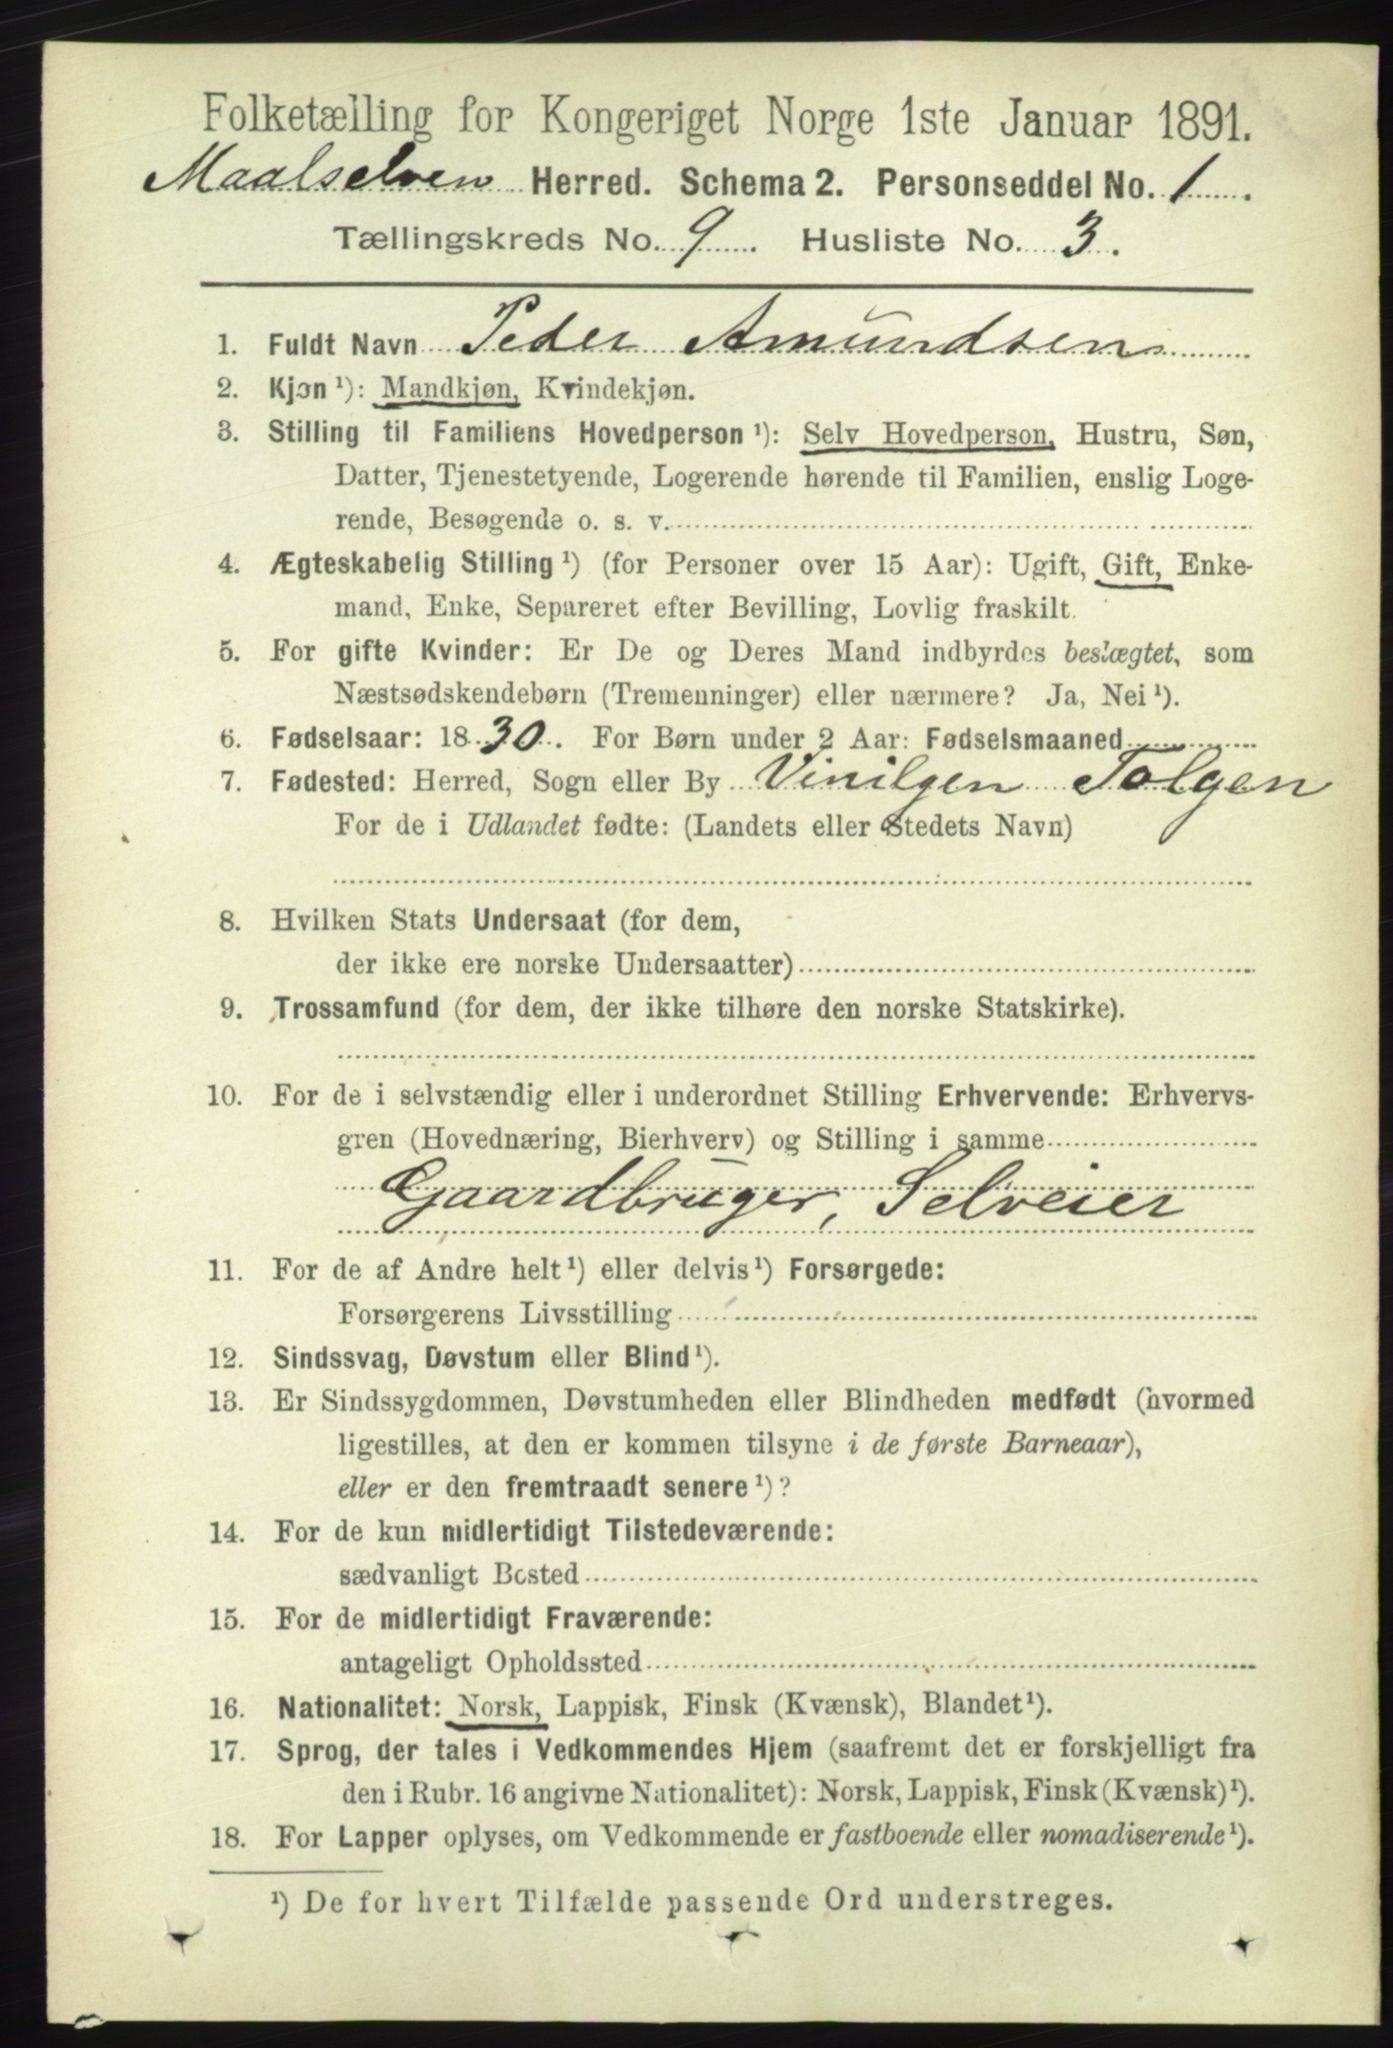 Folketælling for Kongeriget Norge 1ste Januar 1891.
Maalselven Herred. Schema 2. Personseddel No. 1.
Tællingskreds No. 9. Husliste No. 3.
1. Fuldt Navn Peder Amundsen
2. Kjøn ¹): Mandkjøn, Kvindekjøn.
3. Stilling til Familiens Hovedperson ¹): Selv Hovedperson, Hustru, Søn,
Datter, Tjenestetyende, Logerende hørende til Familien, enslig Loge-
rende, Besøgende o. s. v.
4. Ægteskabelig Stilling ¹) (for Personer over 15 Aar): Ugift, Gift, Enke-
mand, Enke, Separeret efter Bevilling, Lovlig fraskilt.
5. For gifte Kvinder: Er De og Deres Mand indbyrdes beslægtet, som
Næstsødskendebørn (Tremenninger) eller nærmere? Ja, Nei ¹).
6. Fødselsaar: 1830. For Børn under 2 Aar: Fødselsmaaned
7. Fødested: Herred, Sogn eller By Vinilgen Tolgen
For de i Udlandet fødte: (Landets eller Stedets Navn)
8. Hvilken Stats Undersaat (for dem,
der ikke ere norske Undersaatter)
9. Trossamfund (for dem, der ikke tilhøre den norske Statskirke).
10. For de i selvstændig eller i underordnet Stilling Erhvervende: Erhvervs-
gren (Hovednæring, Bierhverv) og Stilling i samme
Gaardbruger, Selveier
11. For de af Andre helt ¹) eller delvis ¹) Forsørgede:
Forsørgerens Livsstilling
12. Sindssvag, Døvstum eller Blind ¹).
13. Er Sindssygdommen, Døvstumheden eller Blindheden medfødt (hvormed
ligestilles, at den er kommen tilsyne i de første Barneaar),
eller er den fremtraadt senere ¹)?
14. For de kun midlertidigt Tilstedeværende:
sædvanligt Bosted
15. For de midlertidigt Fraværende:
antageligt Opholdssted
16. Nationalitet: Norsk, Lappisk, Finsk (Kvænsk), Blandet ¹).
17. Sprog, der tales i Vedkommendes Hjem (saafremt det er forskjelligt fra
den i Rubr. 16 angivne Nationalitet): Norsk, Lappisk, Finsk (Kvænsk) ¹).
18. For Lapper oplyses, om Vedkommende er fastboende eller nomadiserende ¹).
¹) De for hvert Tilfælde passende Ord understreges.